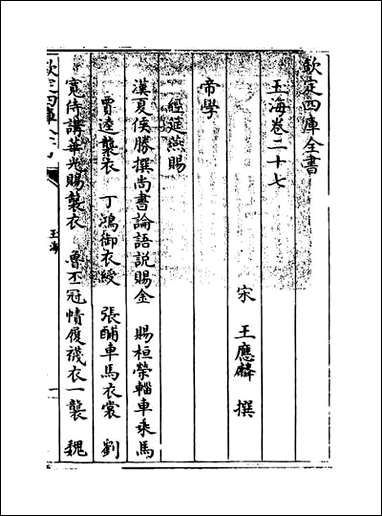 欽定四庫全書
玉海卷二十七
宋 王應麟 撰
帝學
經筵燕賜
漢夏侯勝撰尚書論語説賜金 賜桓榮輜車乗馬
賈逵襲衣 丁鴻御衣綬 張酺車馬衣裳 劉
寛侍講華光賜襲衣 魯丕冠幘履襪衣一襲 魏
欽定四庫全書
玉海